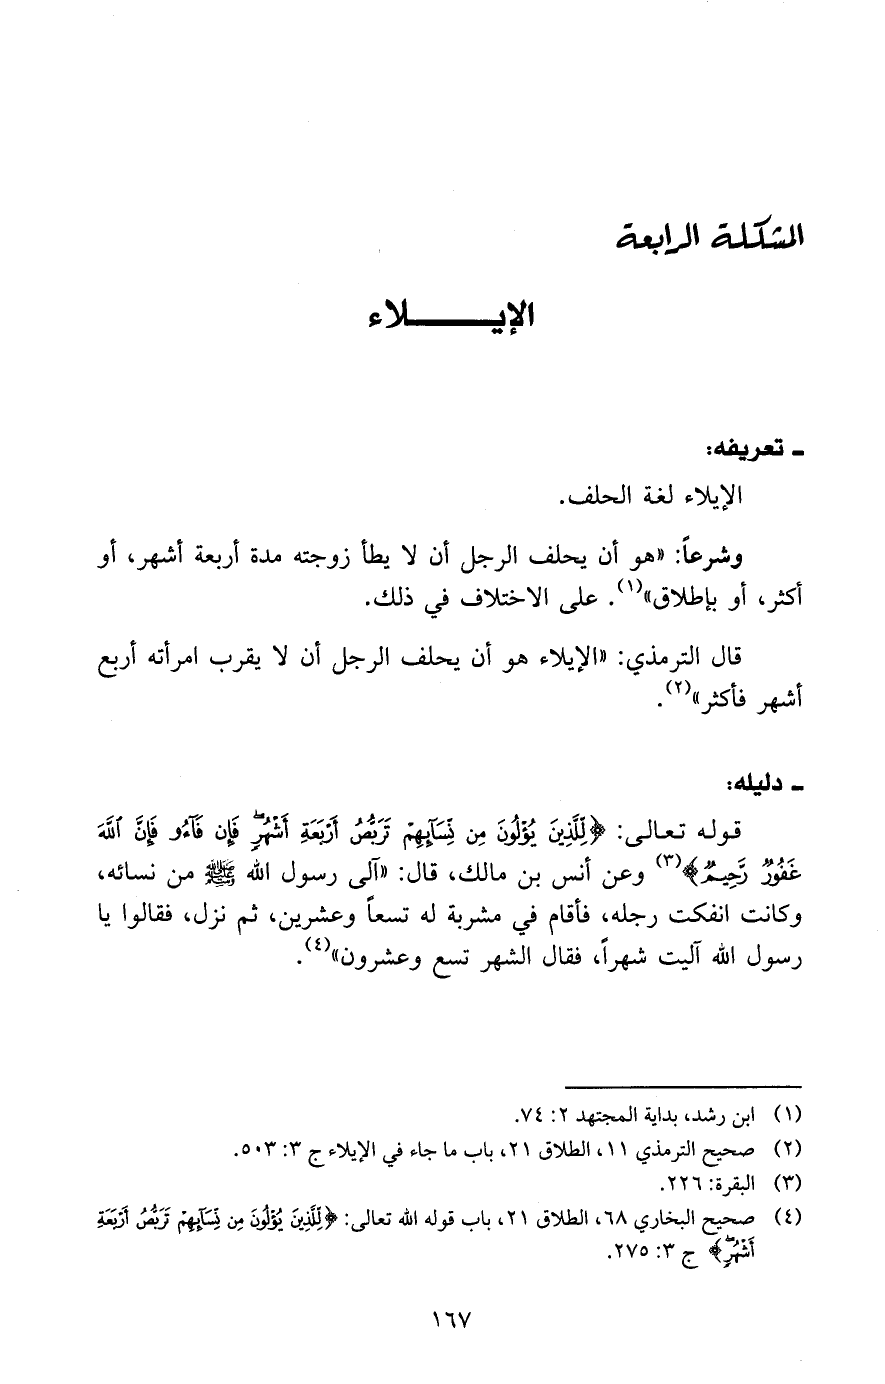 المشكلة الرابعة
الإيـــــــلاء
ـ تعريفه:
الإيلاء لغة الحلف.
وشرعاً: «هو أن يحلف الرجل أن لا يطأ زوجته مدة أربعة أشهر، أو
أكثر، أو بإطلاق»(١). على الاختلاف في ذلك.
قال الترمذي: «الإيلاء هو أن يحلف الرجل أن لا يقرب امرأته أربع
أشهر فأكثر»(٢).
ـ دليله:
قوله تعالى: ﴿لِّلَّذِينَ يُؤْلُونَ مِن نِّسَآئِهِمْ تَرَبُّصُ أَرْبَعَةِ أَشْهُرٍۖ فَإِن فَآءُو فَإِنَّ ٱللَّهَ
غَفُورٌ رَّحِيمٌ﴾(٣) وعن أنس بن مالك، قال: «آلى رسول الله ﷺ من نسائه،
وكانت انفكت رجله، فأقام في مشربة له تسعاً وعشرين، ثم نزل، فقالوا يا
رسول الله آليت شهراً، فقال الشهر تسع وعشرون»(٤).
(١) ابن رشد، بداية المجتهد ٢: ٧٤.
(٢) صحيح الترمذي ١١، الطلاق ٢١، باب ما جاء في الإيلاء ج ٣: ٥٠٣.
(٣) البقرة: ٢٢٦.
(٤) صحيح البخاري ٦٨، الطلاق ٢١، باب قوله الله تعالى: ﴿لِّلَّذِينَ يُؤْلُونَ مِن نِّسَآئِهِمْ تَرَبُّصُ أَرْبَعَةِ
أَشْهُرٍۖ﴾ ج ٣: ٢٧٥.
١٦٧